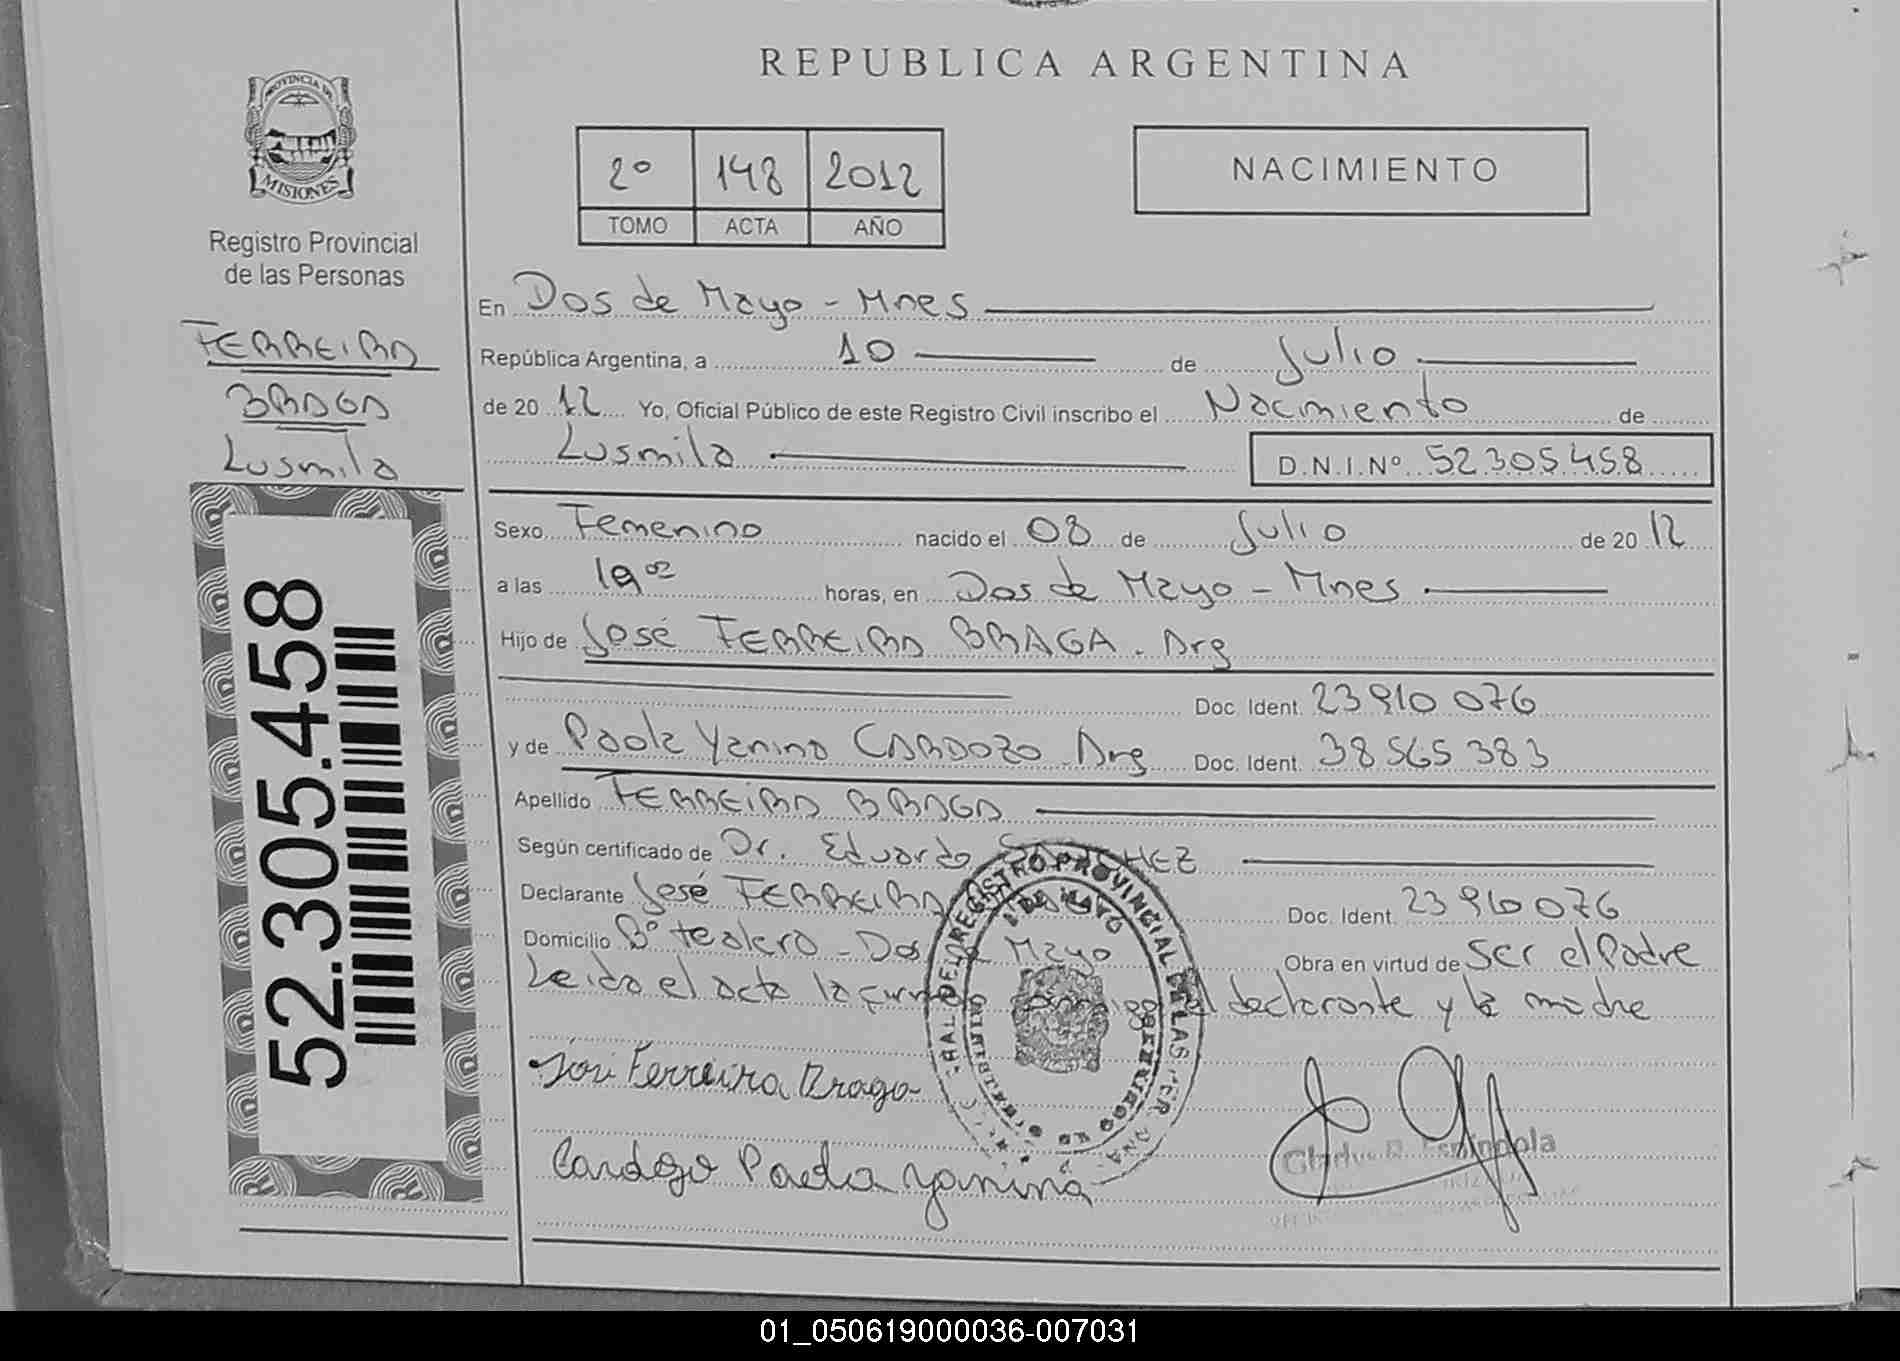 REPUBLICA ARGENTINA
PROVINCIA DE
MISIONES
Registro Provincial
de las Personas
2º 148 2012
TOMO ACTA AÑO
NACIMIENTO
FERREIRA
BRAGA
Lusmila
52.305.458
En Dos de Mayo - Mnes
República Argentina, a 10 de Julio
de 2012 Yo, Oficial Público de este Registro Civil inscribo el Nacimiento de
Lusmila D.N.I.Nº 52.305.458
Sexo Femenino nacido el 08 de Julio de 2012
a las 19 02 horas, en Dos de Mayo - Mnes
Hijo de José FERREIRA BRAGA. Arg
Doc. Ident. 23910076
y de Paola Yanina CARDOZO Arg Doc. Ident. 38565383
Apellido FERREIRA BRAGA
Según certificado de Dr. Eduardo SANCHEZ
Declarante José FERREIRA Doc. Ident. 23910076
Domicilio Bº tealero - Dos de Mayo Obra en virtud de ser el Padre
Leida el acta la firman conmigo el declarante y la madre
José Ferreira Braga
Cardozo Paola Yanina
Gladys R. Espíndola
REGISTRO PROVINCIAL DE LAS PER
2 DE MAYO
01_050619000036-007031